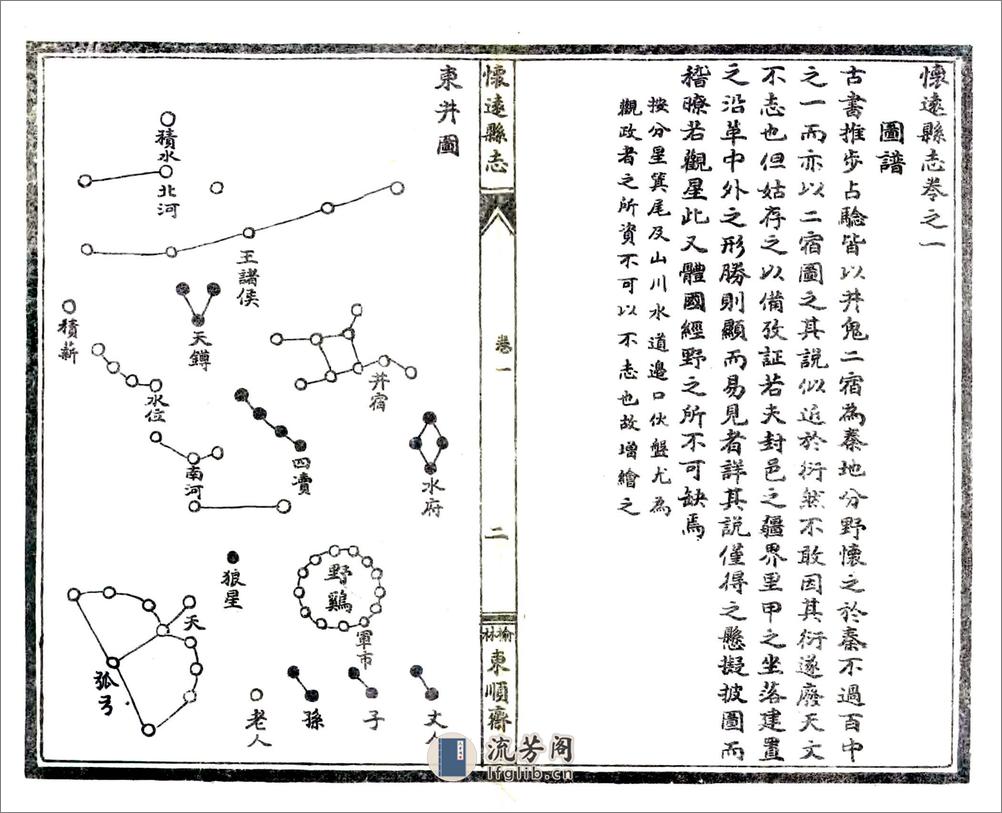 懷遠縣志卷之一
圖譜
古書推步占驗皆以井鬼二宿為秦地分野懷之於秦不過百中
之一而亦以二宿圖之其說似近於衍然不敢因其衍遂廢天文
不志也但姑存之以備攷証若夫封邑之疆界里甲之坐落建置
之沿革中外之形勝則顯而易見者詳其說僅得之懸擬披圖而
稽瞭若觀星此又體國經野之所不可缺焉
按分星箕尾及山川水道邊口伙盤尤為
觀政者之所資不可以不志也故增繪之
懷遠縣志
卷一
二
榆林
東順齋
東井圖
積水
北河
王諸侯
積薪
天罇
水位
井宿
四瀆
水府
南河
狼星
野鷄
軍市
天
弧弓
老人
孫
子
丈人
流芳阁
lfglib.cn